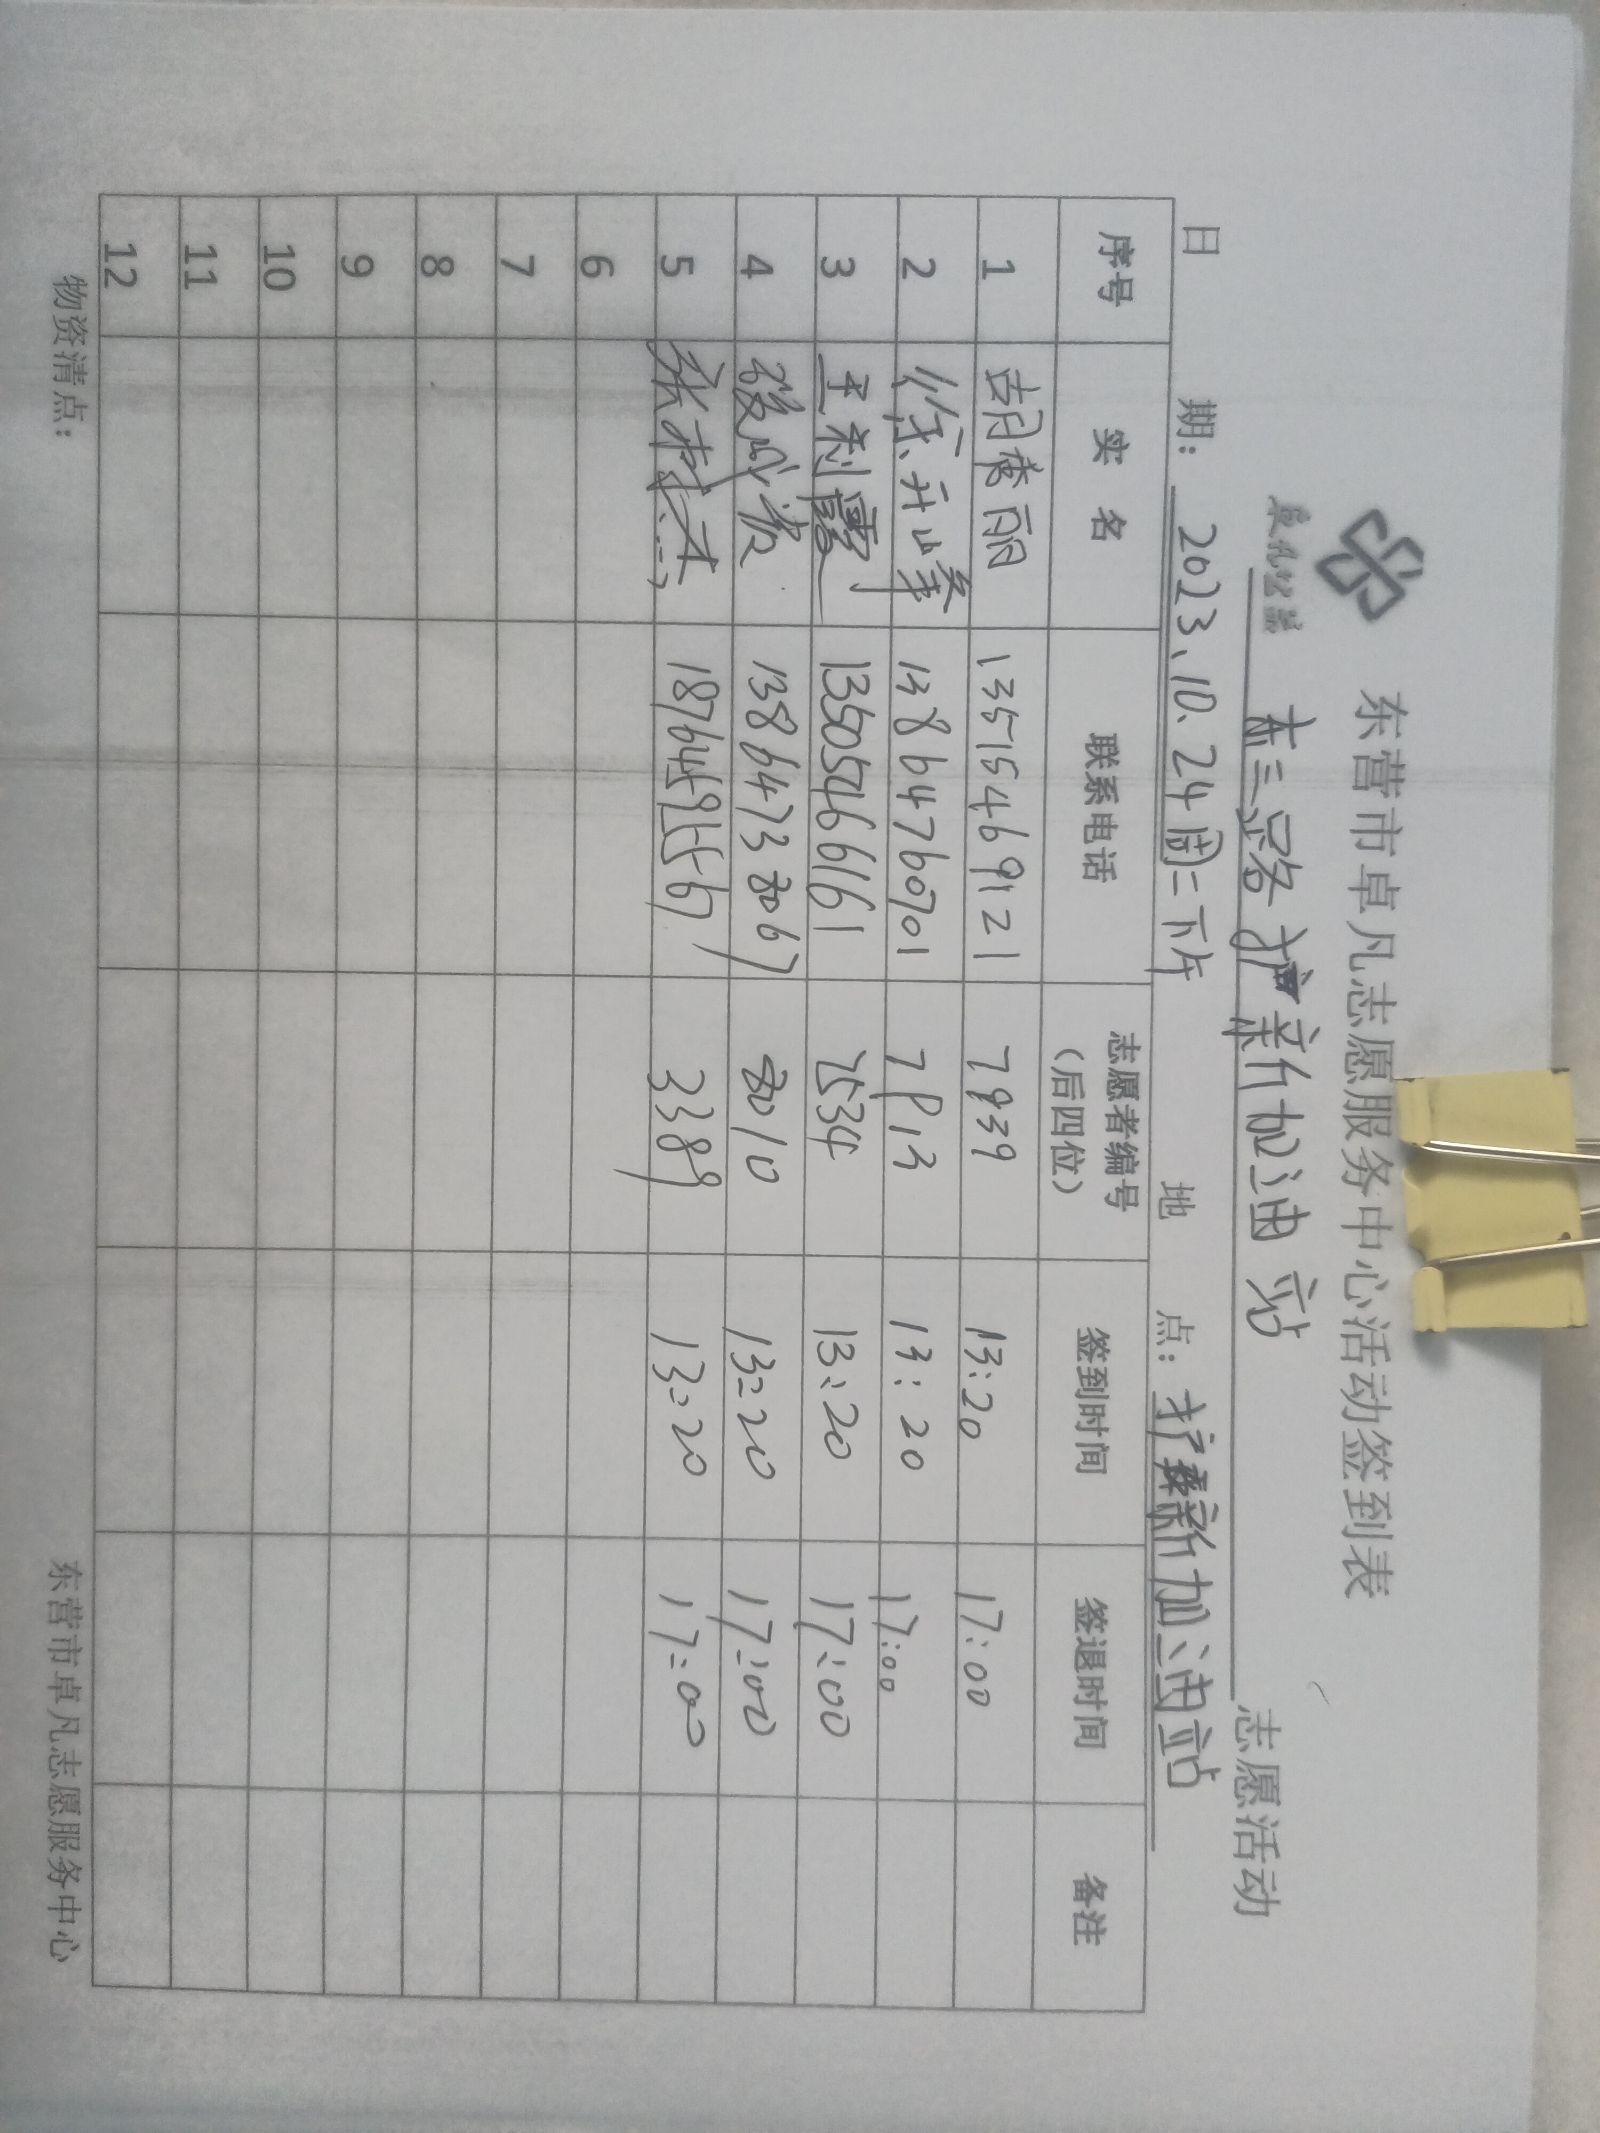 东营市卓凡志愿服务中心活动签到表
卓凡公益
东三路扩新加油站 志愿活动
日期：2023、10、24周二下午 地点：扩新加油站
序号 实名 联系电话 志愿者编号（后四位） 签到时间 签退时间 备注
1 13515469121 7939 13:20 17:00
2 13864760701 7913 13:20 17:00
3 王利霞 13505466161 7534 13:20 17:00
4 13864738067 8010 13:20 17:00
5 18764595567 3389 13:20 17:00
6
7
8
9
10
11
12
物资清点： 东营市卓凡志愿服务中心